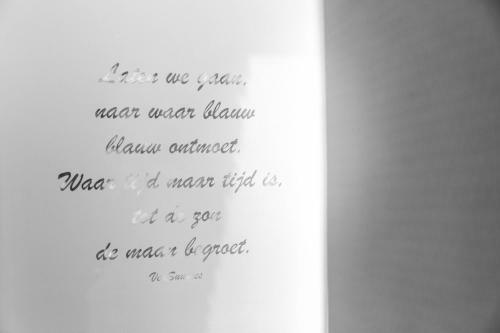 Laten we gaan,
naar waar blauw
blauw ontmoet.
Waar tijd maar tijd is,
tot de zon
de maan begroet.